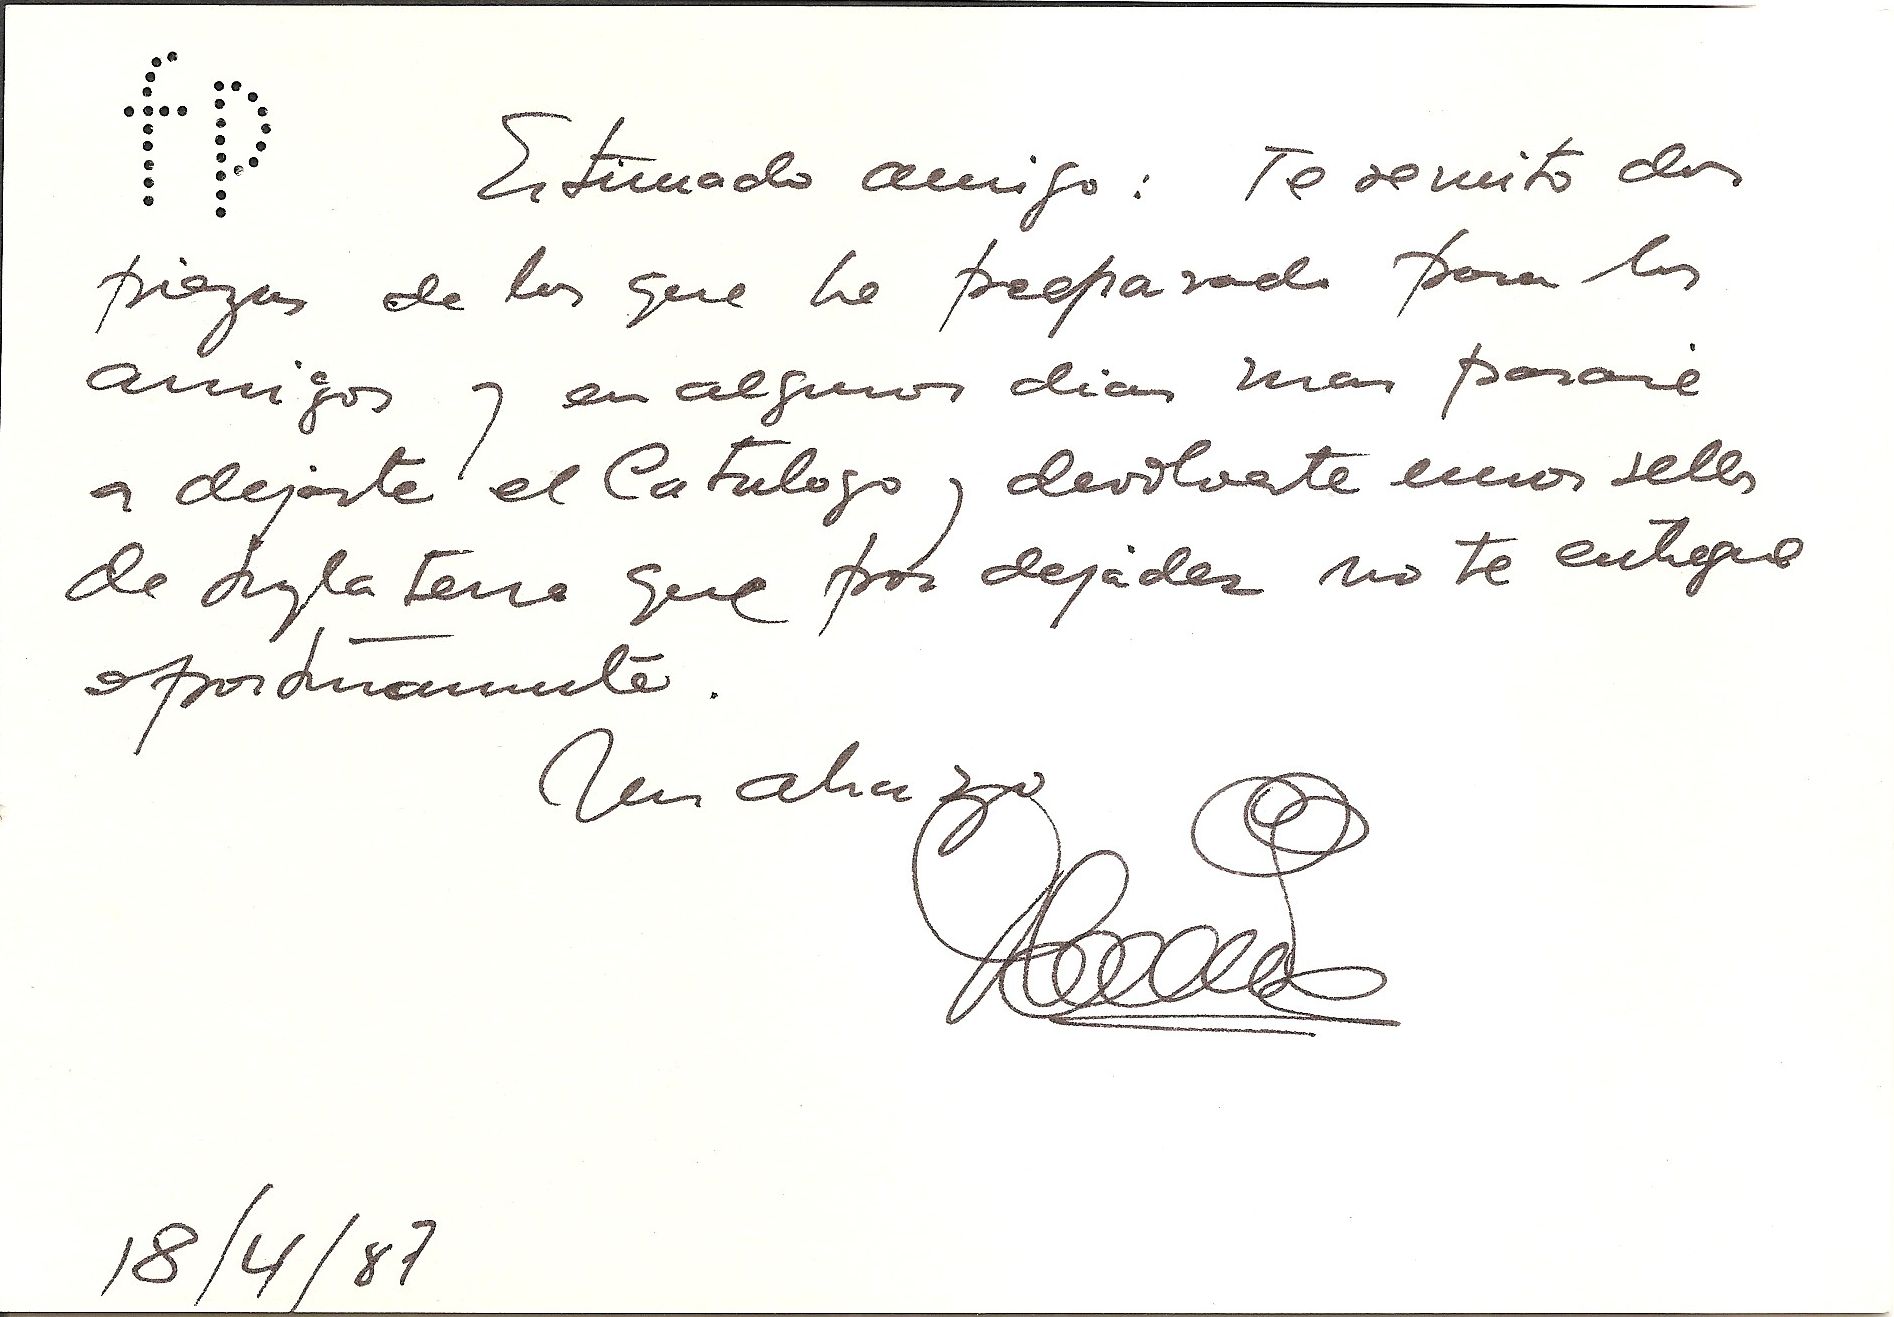 fp
Estimado amigo: Te remito dos
piezas de las que he preparado para los
amigos y en algunos dias mas pasaré
a dejarte el Catalogo y devolverte unos sellos
de Inglaterra que por dejadez no te entregue
oportunamente.
Un abrazo
18/4/87